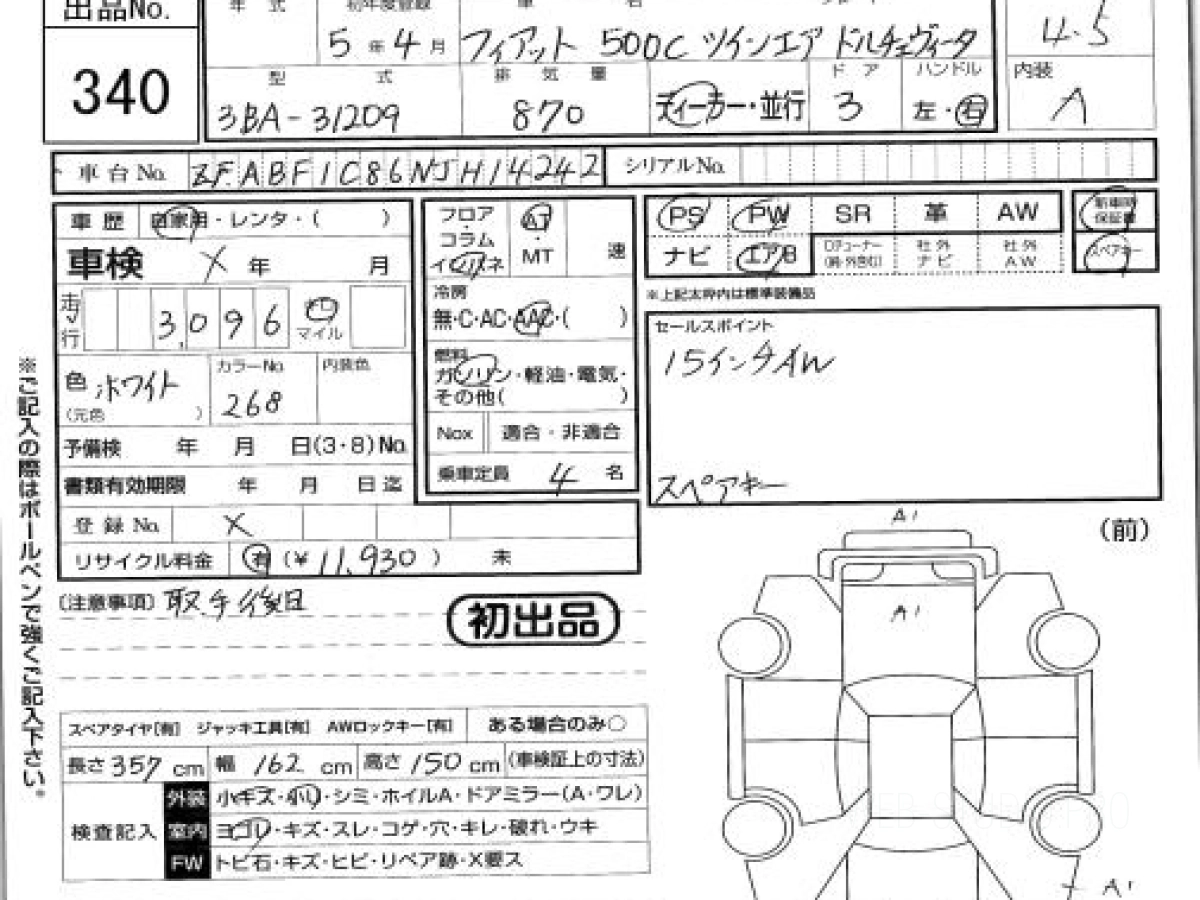 出品No.
340
年 式 初年度登録 車 名
5年4月 フィアット 500C ツインエア ドルチェヴィータ
4.5
型 式 排 気 量 ド ア ハンドル 内装
3BA-31209 870 ディーラー・並行 3 左・右 A
車台No. ZFABF1C86NJH14242 シリアルNo.
車歴 自家用・レンタ・( )
車検 X 年 月
走行 3,096 マイル
色 ホワイト (元色 ) カラーNo. 268 内装色
予備検 年 月 日(3・8)No.
書類有効期限 年 月 日迄
登録No. X
リサイクル料金 有 (¥11,930) 未
フロア・コラム インパネ AT・MT 速
冷房
無・C・AC・AAC・( )
燃料
ガソリン・軽油・電気・
その他( )
Nox 適合・非適合
乗車定員 4 名
PS PW SR 革 AW 新車時保証書
ナビ エアB Dチューナー 社外ナビ 社外AW スペアキー
※上記太枠内は標準装備品
セールスポイント
15インチAW
スペアキー
(注意事項) 取手後日
初出品
スペアタイヤ[有] ジャッキ工具[有] AWロックキー[有] ある場合のみ○
長さ 357 cm 幅 162 cm 高さ 150 cm (車検証上の寸法)
検査記入
外装 小キズ・小凹・シミ・ホイルA・ドアミラー(A・ワレ)
室内 ヨゴレ・キズ・スレ・コゲ・穴・キレ・破れ・ウキ
FW トビ石・キズ・ヒビ・リペア跡・X要ス
A1
(前)
A1
A1
※ご記入の際はボールペンで強くご記入下さい。